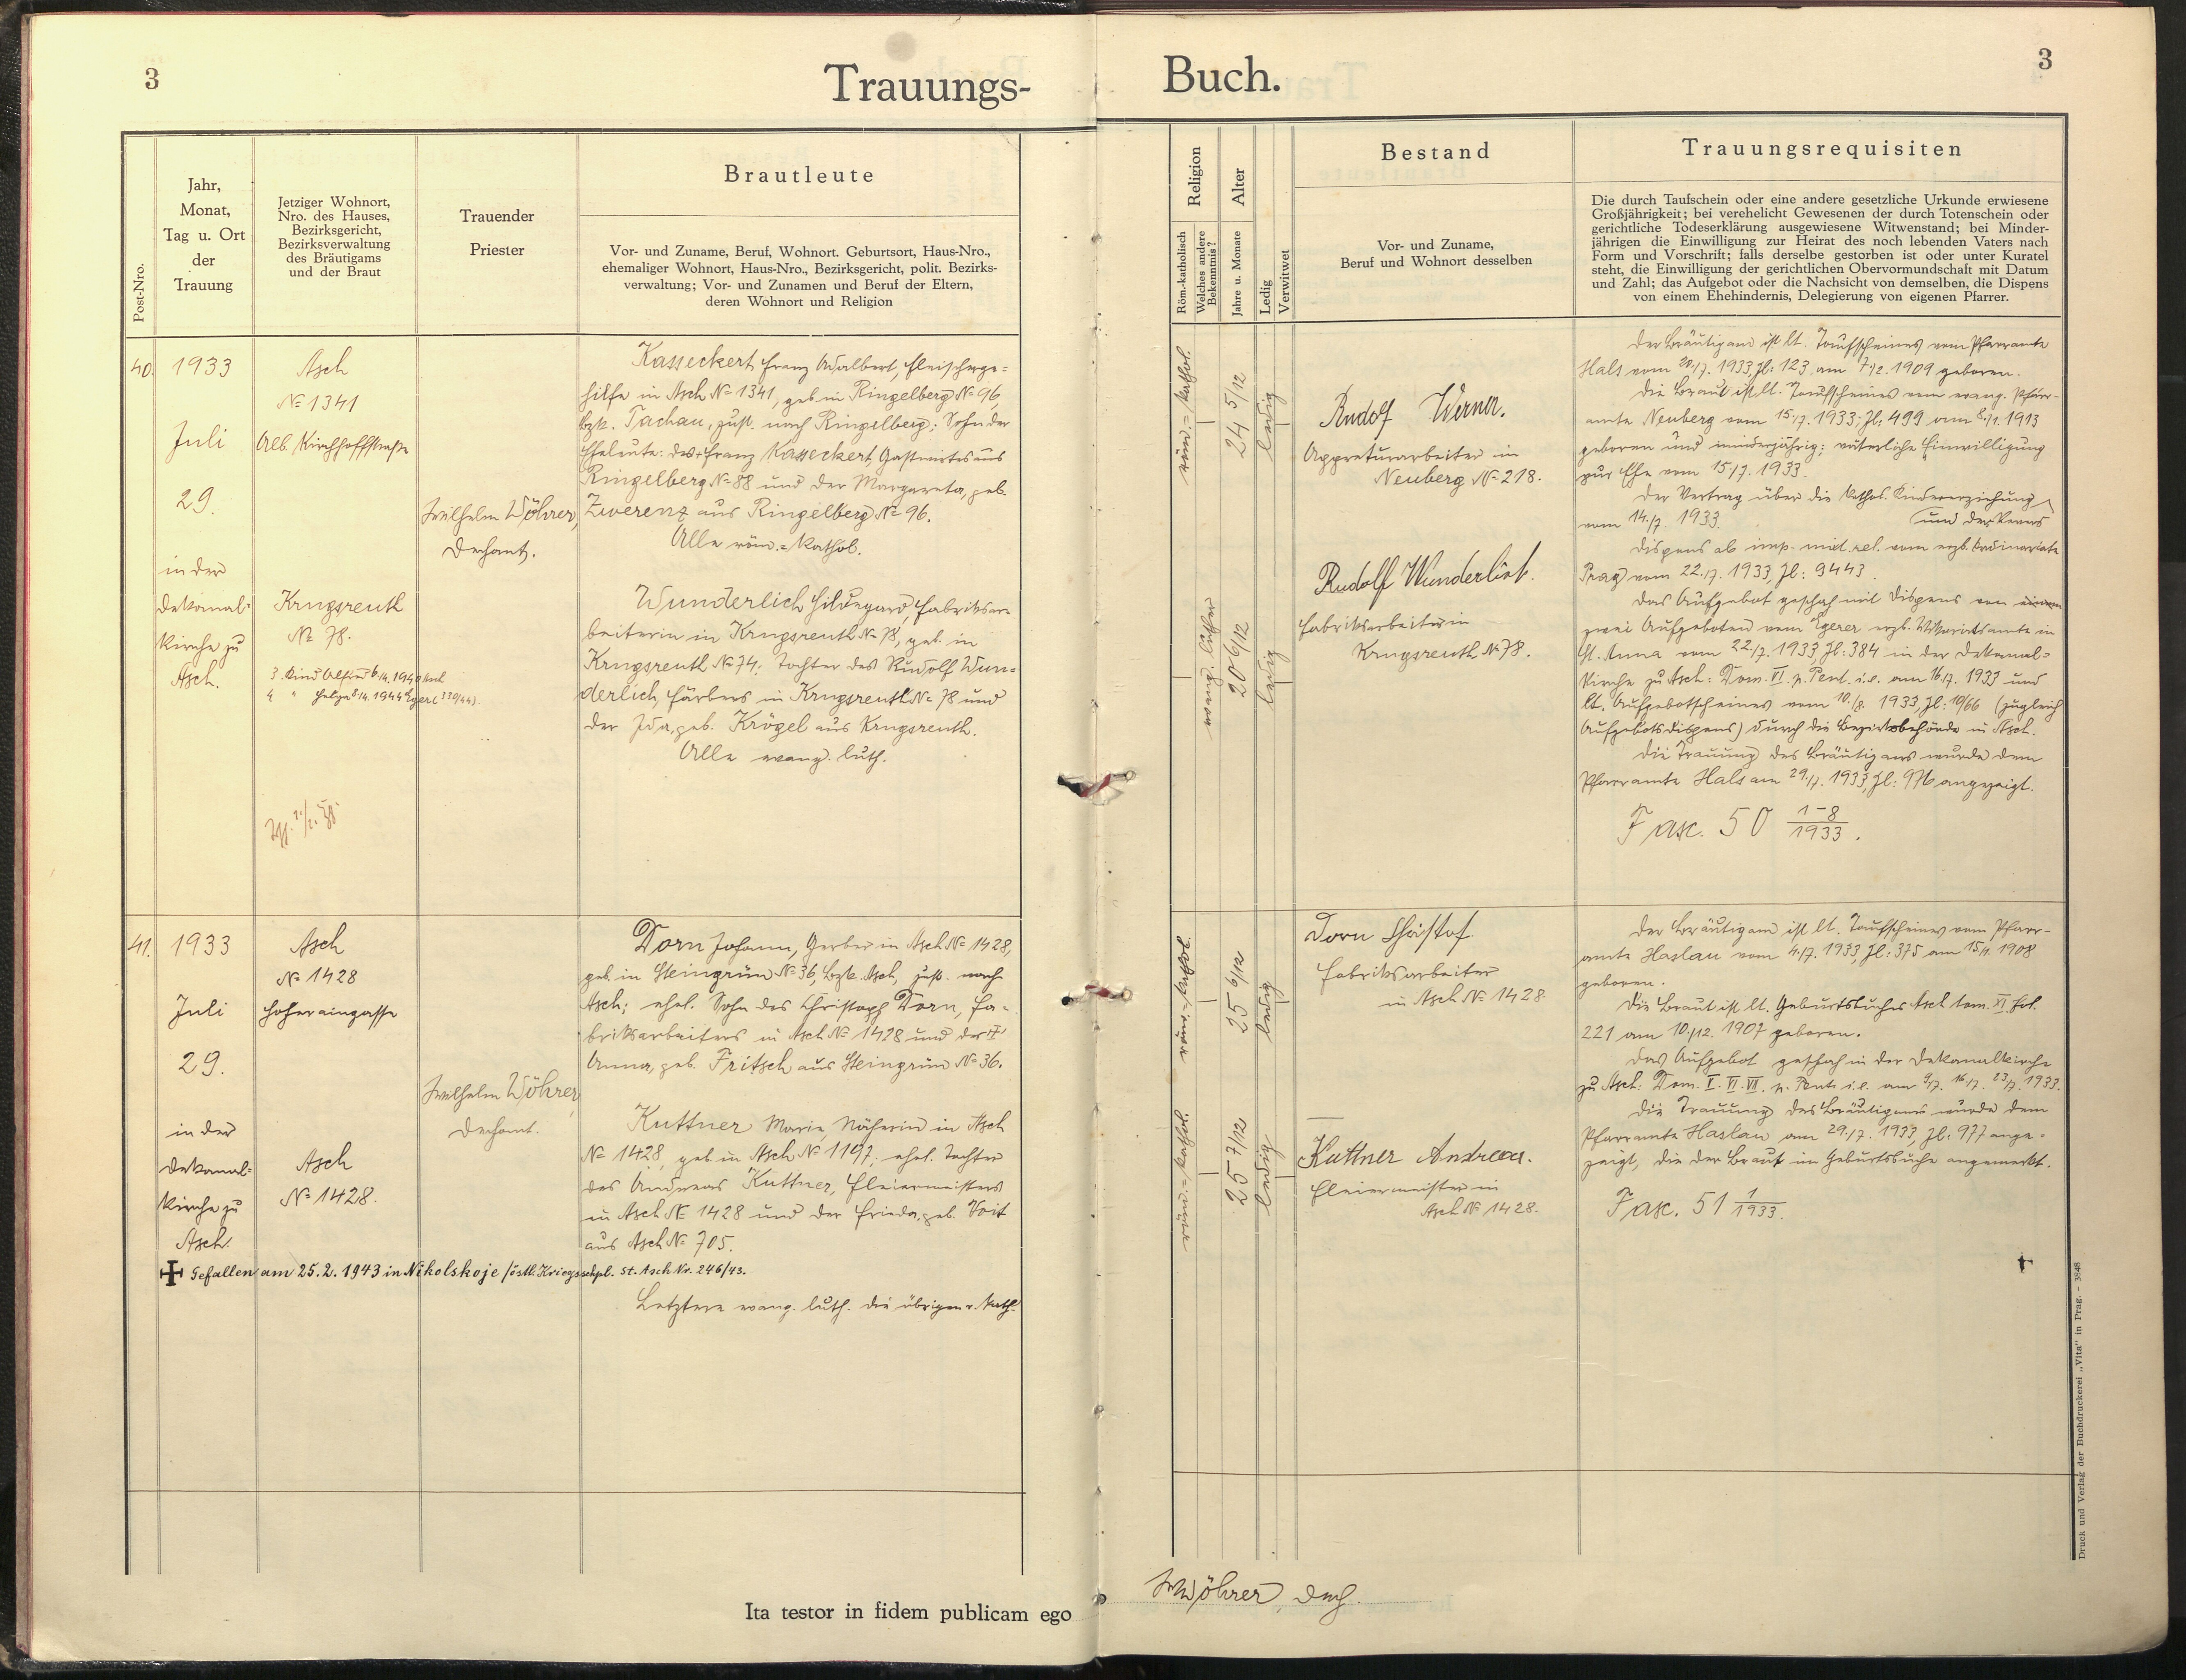 3
Trauungs-
Post-Nro.
Jahr,
Monat,
Tag u. Ort
der
Trauung
Jetziger Wohnort,
Nro. des Hauses,
Bezirksgericht,
Bezirksverwaltung
des Bräutigams
und der Braut
Trauender
Priester
Brautleute
Vor- und Zuname, Beruf, Wohnort. Geburtsort, Haus-Nro.,
ehemaliger Wohnort, Haus-Nro., Bezirksgericht, polit. Bezirks-
verwaltung; Vor- und Zunamen und Beruf der Eltern,
deren Wohnort und Religion
40.
1933
Juli
29.
in der
Dekanal=
kirche zu
Asch.
Asch
№ 1341
Alb. Kirchhoffstraße
Krugsreuth
№ 78.
Wilhelm Wöhrer,
Dechant.
Kasseckert Franz Adalbert, Fleischerge=
hilfe in Asch № 1341, geb. in Ringelberg № 96,
Bzk. Tachau, zust. nach Ringelberg; Sohn der
Eheleute: des + Franz Kasseckert, Gastwirtes aus
Ringelberg № 88 und der Margareta, geb.
Zwerenz aus Ringelberg № 96.
Alle röm.=kathol.
Wunderlich Hildegard, Fabriksar=
beiterin in Krugsreuth № 78, geb. in
Krugsreuth № 74; Tochter des Rudolf Wun=
derlich, Färbers in Krugsreuth № 78 und
der Ida, geb. Krögel aus Krugsreuth.
Alle evang. luth.
41.
1933
Juli
29.
in der
Dekanal=
kirche zu
Asch.
Asch
№ 1428
Hoheraingasse
Asch
№ 1428.
Wilhelm Wöhrer
Dechant.
Dorn Johann, Gerber in Asch № 1428,
geb. in Steingrün № 36, Bzk. Asch, zust. nach
Asch; ehel. Sohn des Christoph Dorn, Fa=
briksarbeiters in Asch № 1428 und der +
Anna, geb. Fritsch aus Steingrün № 36.
Kuttner Marie, Näherin in Asch
№ 1428, geb. in Asch № 1197; ehel. Tochter
des Andreas Kuttner, Fleiermeisters
in Asch № 1428 und der Frieda, geb. Voit
aus Asch № 705.
✠ Gefallen am 25.2.1943 in Nikolskoje /östl. Kriegsschpl. St. Asch Nr. 246/43.
Letztere evang. luth. die übrigen r. kath.
Ita testor in fidem publicam ego
Buch.
3
Religion
Röm.-katholisch
Welches andere Bekenntnis?
Alter
Jahre u. Monate
Ledig
Verwitwet
Bestand
Vor- und Zuname,
Beruf und Wohnort desselben
Trauungsrequisiten
Die durch Taufschein oder eine andere gesetzliche Urkunde erwiesene
Großjährigkeit; bei verehelicht Gewesenen der durch Totenschein oder
gerichtliche Todeserklärung ausgewiesene Witwenstand; bei Minder-
jährigen die Einwilligung zur Heirat des noch lebenden Vaters nach
Form und Vorschrift; falls derselbe gestorben ist oder unter Kuratel
steht, die Einwilligung der gerichtlichen Obervormundschaft mit Datum
und Zahl; das Aufgebot oder die Nachsicht von demselben, die Dispens
von einem Ehehindernis, Delegierung von eigenen Pfarrer.
röm.=kathol.
24 5/12
ledig
evang. luther
20 6/12
ledig
Rudolf Werner.
Appreturarbeiter in
Neuberg № 218.
Rudolf Wunderlich.
Fabriksarbeiter in
Krugsreuth № 78.
Der Bräutigam ist lt. Taufscheines vom Pfarramte
Hals vom 20./7. 1933, Zl: 123 am 7./2. 1909 geboren.
Die Braut ist lt. Taufscheines vom evang. Pfarr-
amte Neuberg vom 15./7. 1933; Zl: 499 am 8./1. 1913
geboren und minderjährig; väterliche Einwilligung
zur Ehe vom 15./7. 1933.
Der Vertrag über die kathol. Kindererziehung
vom 14./7. 1933. (und der Revers
Dispens ab imp. mixt. rel. vom erzb. Ordinariate
Prag vom 22./7. 1933, Zl: 9443.
Das Aufgebot geschah mit Dispens von
zwei Aufgeboten vom Egerer erzb. Vikariatsamte in
St. Anna vom 22./7. 1933, Zl: 384 in der Dekanal=
kirche zu Asch: Dom. VI. p. Pent. i. e. am 16./7. 1933 und
lt. Aufgebotscheines vom 10./8. 1933, Zl: 10/66 (zugleich
Aufgebotsdispens) durch die Bezirksbehörde in Asch.
Die Trauung des Bräutigams wurde dem
Pfarramte Hals am 29./7. 1933, Zl: 976 angezeigt.
Fasc. 50 1-8/1933.
röm.=kathol.
25 6/12
ledig
röm.=kathol.
25 7/12
ledig
Dorn Christof
Fabriksarbeiter
in Asch № 1428
Kuttner Andreas.
Fleiermeister in
Asch № 1428.
Der Bräutigam ist lt. Taufscheines vom Pfarr-
amte Haslau vom 4./7. 1933, Zl: 375 am 15./1. 1908
geboren.
Die Braut ist lt. Geburtsbuches Asch tom. XI. fol.
221 am 10./12. 1907 geboren.
Das Aufgebot geschah in der Dekanalkirche
zu Asch: Dom. V. VI. VII. p. Pent. i. e. am 9./7. 16./7. 23./7. 1933.
Die Trauung des Bräutigams wurde dem
Pfarramte Haslau am 29./7. 1933, Zl: 977 ange=
zeigt, die der Braut im Geburtsbuche angemerkt.
Fasc. 51 1/1933.
Wöhrer, Dech.
Druck und Verlag der Buchdruckerei „Vita“ in Prag. – 3848